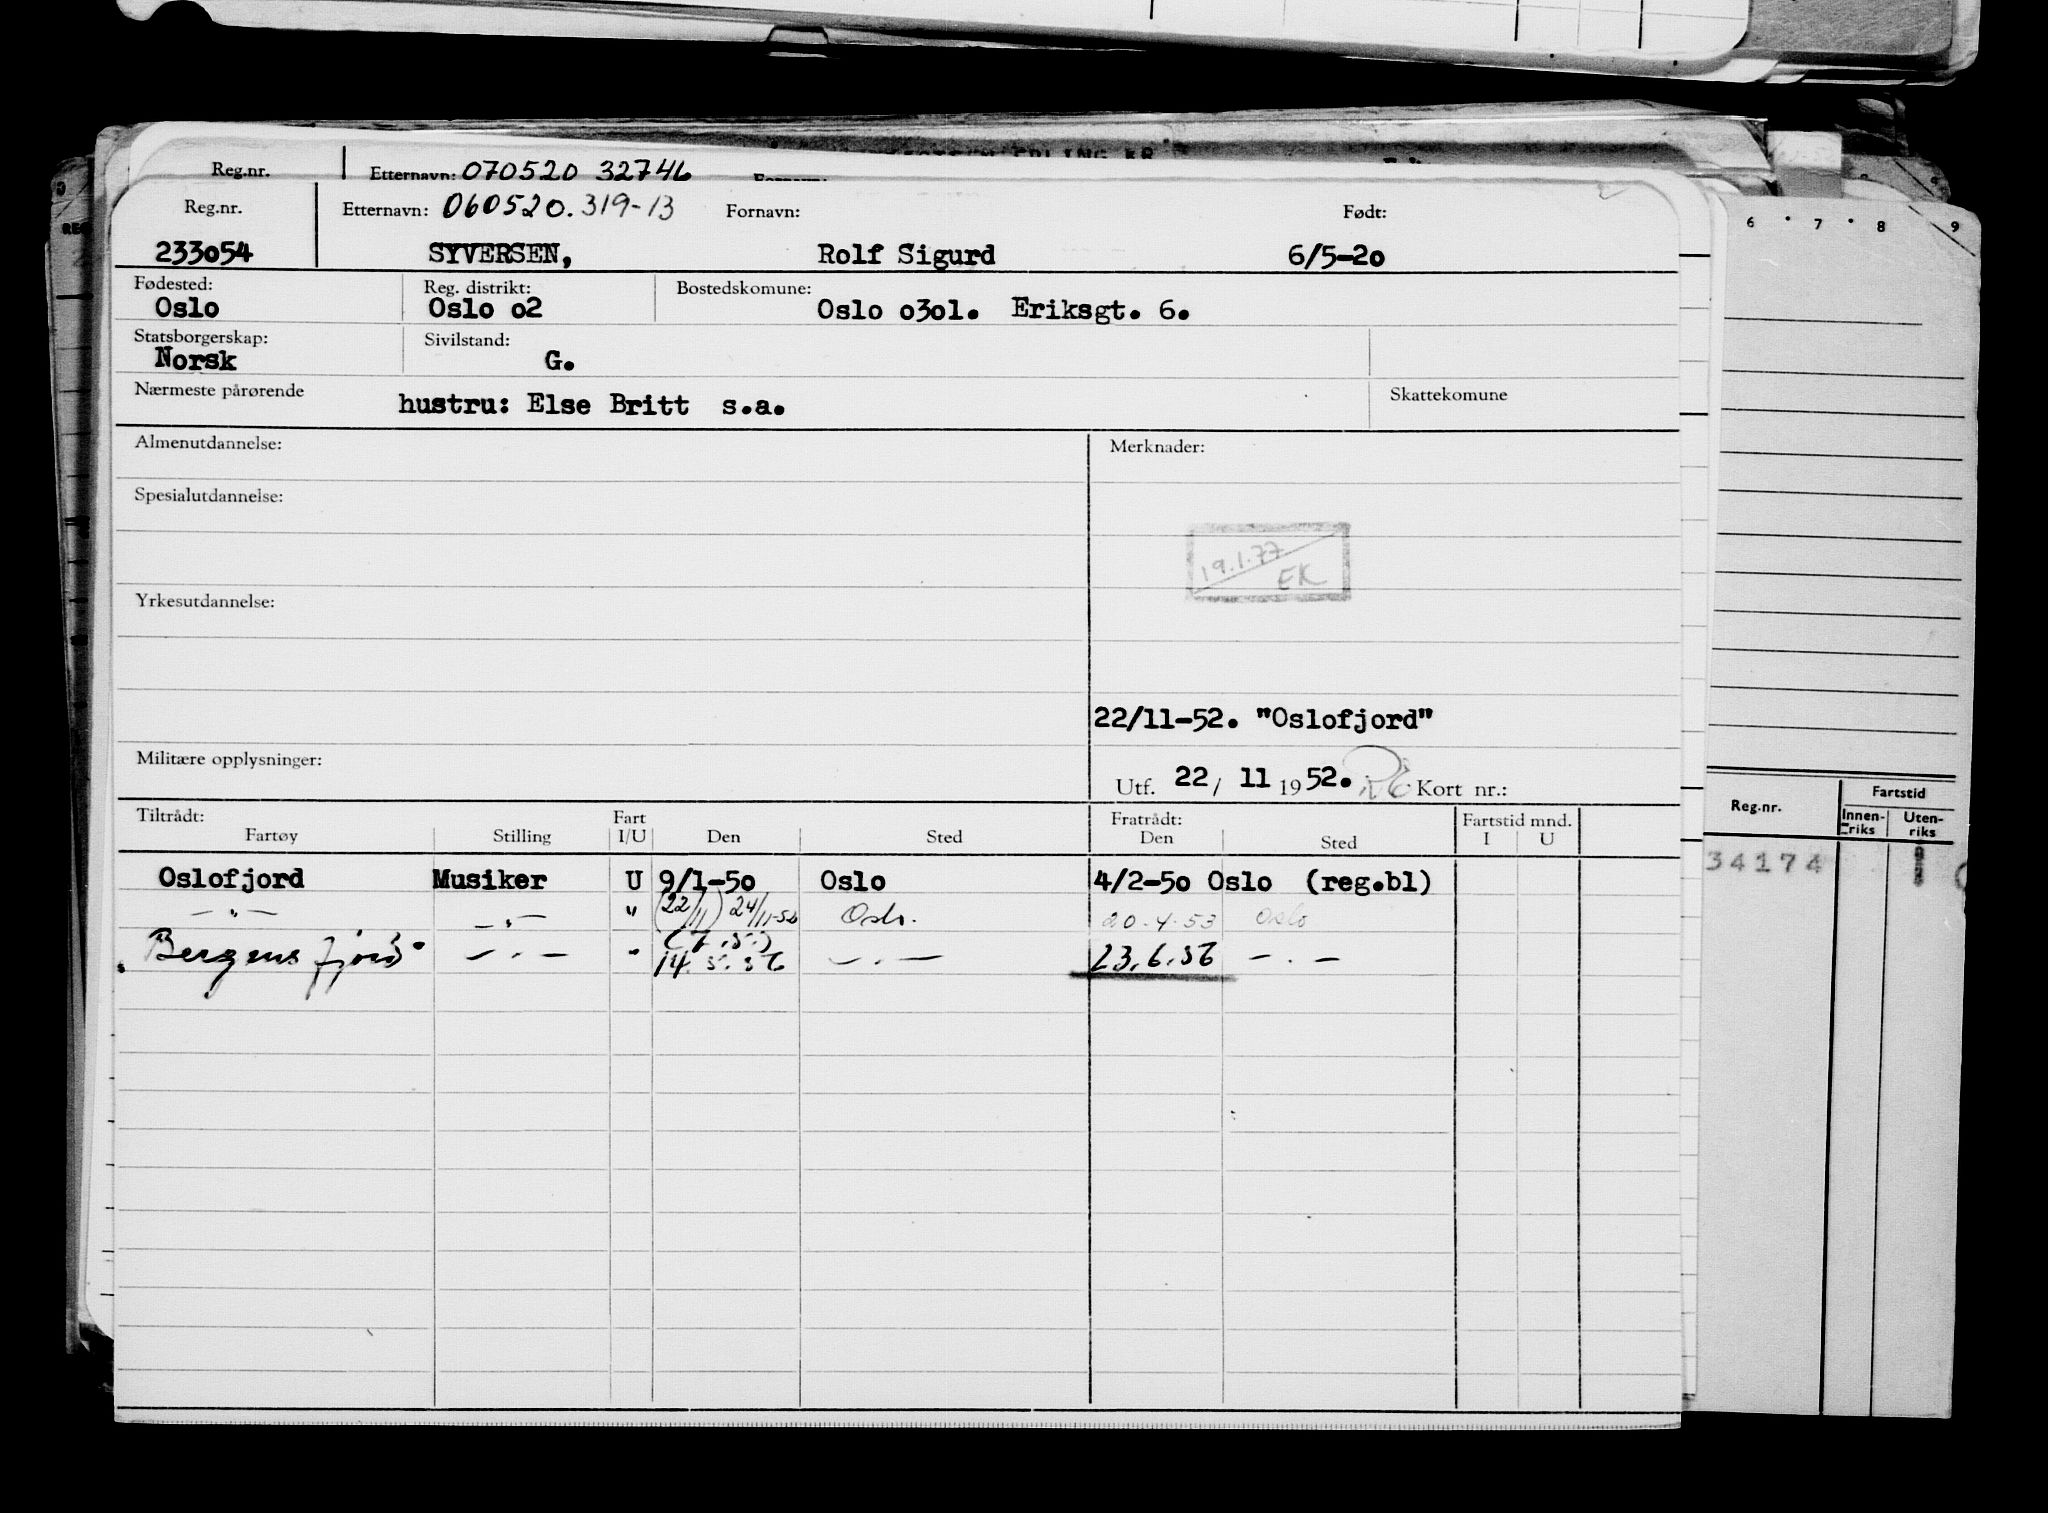 Reg.nr. Etternavn: 070520 32746
Reg.nr. Etternavn: 060520.319-13 Fornavn: Født:
233o54 SYVERSEN, Rolf Sigurd 6/5-2o
Fødested: Reg. distrikt: Bostedskomune:
Oslo Oslo o2 Oslo o3ol. Eriksgt. 6.
Statsborgerskap: Sivilstand:
Norsk G.
Nærmeste pårørende hustru: Else Britt s.a. Skattekomune
Almenutdannelse: Merknader:
Spesialutdannelse:
19.1.77
EK
Yrkesutdannelse:
22/11-52. "Oslofjord"
Militære opplysninger:
Utf. 22/ 11 1952. Kort nr.:
Tiltrådt: Fart Fratrådt: Fartstid mnd.
Fartøy Stilling I/U Den Sted Den Sted I U
Oslofjord Musiker U 9/1-5o Oslo 4/2-5o Oslo (reg.bl)
— " — — " — " (22/11) 24/11-52 Oslo. 20.4.53 Oslo
"Bergensfjord" — " — " (7.5.) 14.5.56 — " — 23.6.56 — " —
6 7 8 9
Reg.nr. Fartstid
Innen-riks Uten-riks
34174